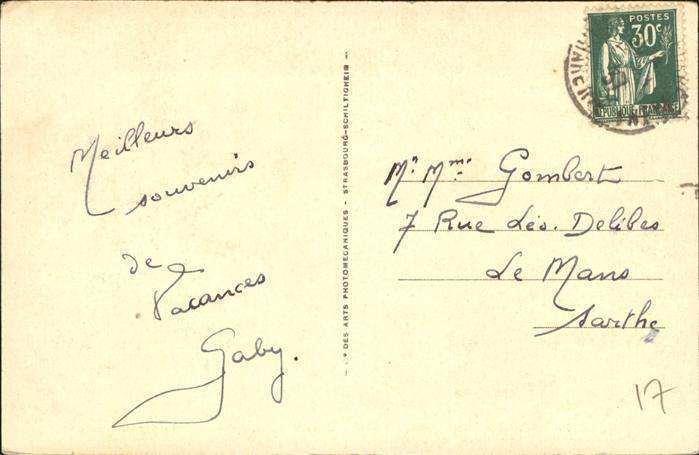 Meilleurs
souvenirs
de
Vacances
Gaby.
DES ARTS PHOTOMECANIQUES - STRASBOURG-SCHILTIGHEIM
POSTES
30c
REPUBLIQUE FRANÇAISE
Mr. Mme. Gombert
7 Rue Léo. Delibes
Le Mans
Sarthe
17